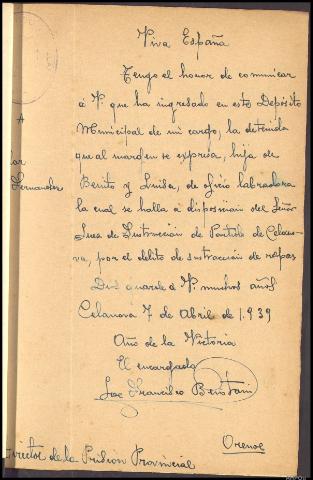 Viva España
Tengo el honor de comunicar
á V. que ha ingresado en este Depósito
Municipal de mi cargo, la detenida
A
que al margen se expresa, hija de
Fernandez
Benito y Luisa, de oficio labradora
la cual se halla á disposición del Señor
Juez de Instrucción de Partido de Celano-
va, por el delito de sustracción de ropas
Dios guarde á V. muchos años
Celanova 7 de Abril de 1.939
Año de la Victoria
El encargado
Francisco
Orense
Director de la Prision Provincial